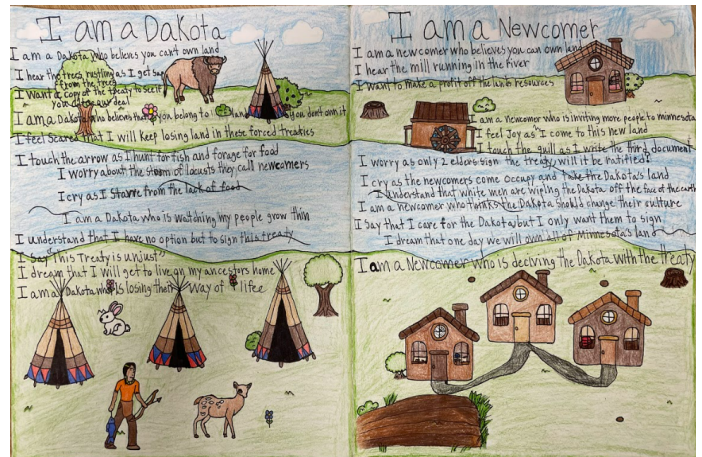 I am a Dakota
I am a Dakota who believes you can't own land
I hear the trees rustling as I get sap
from the trees
I want a copy of the treaty to see if
you do our deal
I am a Dakota who believes that you belong to the land you don't own it
I feel scared that I will keep losing land in these forced treaties
I touch the arrow as I hunt for fish and forage for food
I worry about the storm of locusts they call newcomers
I cry as I starve from the lack of food
I am a Dakota who is watching my people grow thin
I understand that I have no option but to sign this treaty
I say "This Treaty is unjust"
I dream that I will get to live on my ancestors home
I am a Dakota who is losing their way of life
I am a Newcomer
I am a newcomer who believes you can own land
I hear the mill running in the River
I want to make a profit off the lands resources
I am a Newcomer who is inviting more people to Minnesota
I feel Joy as I come to this new land
I touch the quill as I write the third document
I worry as only 2 elders sign the treaty, will it be ratified?
I cry as the newcomers come occupy and take the Dakota's land
I understand that white men are wiping the Dakota off the face of the earth
I am a newcomer who thinks the Dakota should change their culture
I say that I care for the Dakota but I only want them to sign
I dream that one day we will own all of Minnesota's land
I am a Newcomer who is deciving the Dakota with the treaty